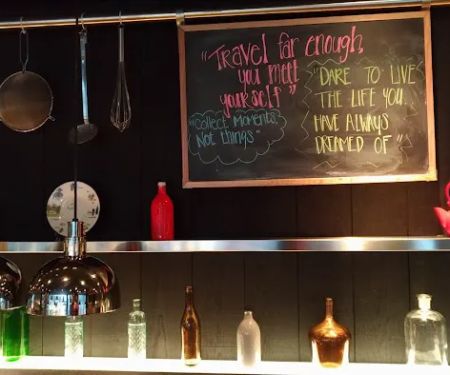 "Travel far enough,
you meet
yourself"
"Collect Moments,
Not things"
"DARE TO LIVE
THE LIFE YOU
HAVE ALWAYS
DREAMED OF"